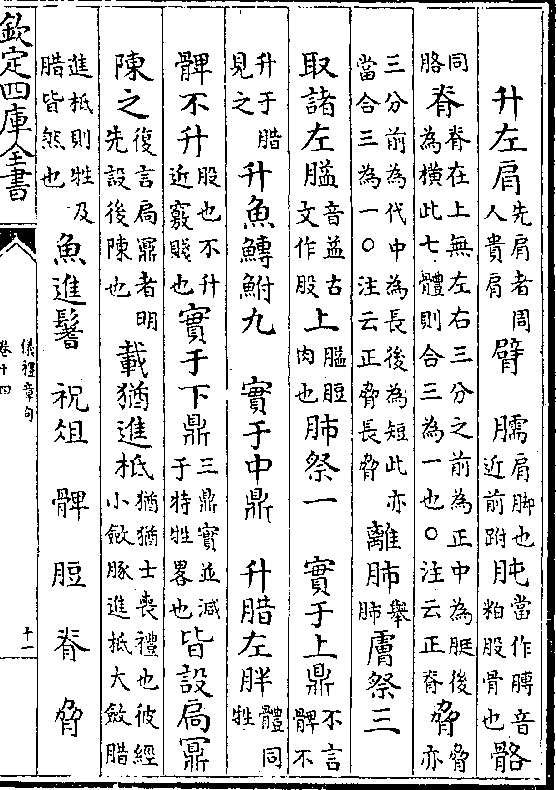 升左肩先肩者周人貴肩臂 臑肩脚也近前跗肫當作膊音粕股骨也骼
同胳脊脊在上無左右三分之前為正中為脡後為橫此七體則合三為一也○注云正脊脅脅亦
三分前為代中為長後為短此亦當合三為一○注云正脅長脅離肺舉肺膚祭三
取諸左膉音益古文作股上膉脰肉也肺祭一 實于上鼎不言髀不
升于腊見之升魚鱄鮒九 實于中鼎 升腊左胖體同牲
髀不升股也不升近竅賤也實于下鼎三鼎實並減于特牲畧也皆設扃鼏
陳之復言扃鼏者明先設後陳也載猶進柢猶猶士喪禮也彼經小斂豚進柢大斂腊
進柢則牲及腊皆然也魚進鬐 祝俎 髀 脰 脊 脅
欽定四庫全書
儀禮章句
卷十四
十一